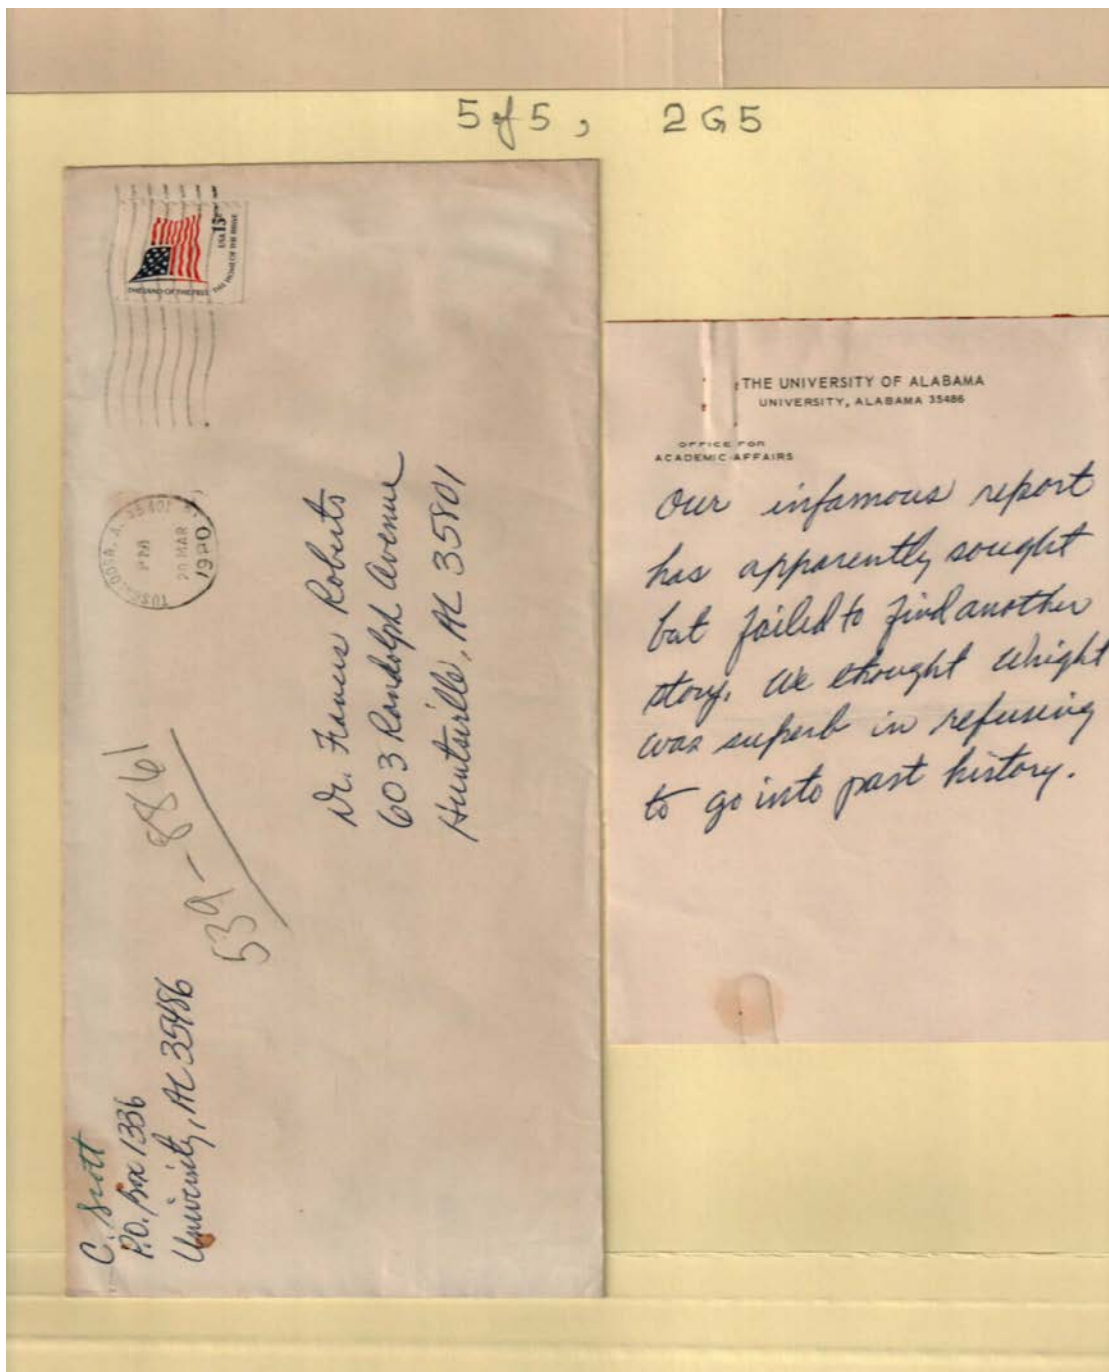 5 of 5, 2G5
USA 15c
THE LAND OF THE FREE THE HOME OF THE BRAVE
TUSCALOOSA, AL 35401
PM
20 MAR
1980
C. Scott
P.O. Box 1336
University, AL 35486
539-8861
Dr. Frances Roberts
603 Randolph Avenue
Huntsville, AL 35801
THE UNIVERSITY OF ALABAMA
UNIVERSITY, ALABAMA 35486
OFFICE FOR
ACADEMIC AFFAIRS
Our infamous report
has apparently sought
but failed to find another
story. We thought Wright
was superb in refusing
to go into past history.